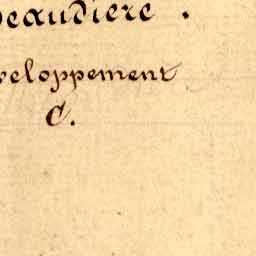 beaudiere .
veloppement
C.